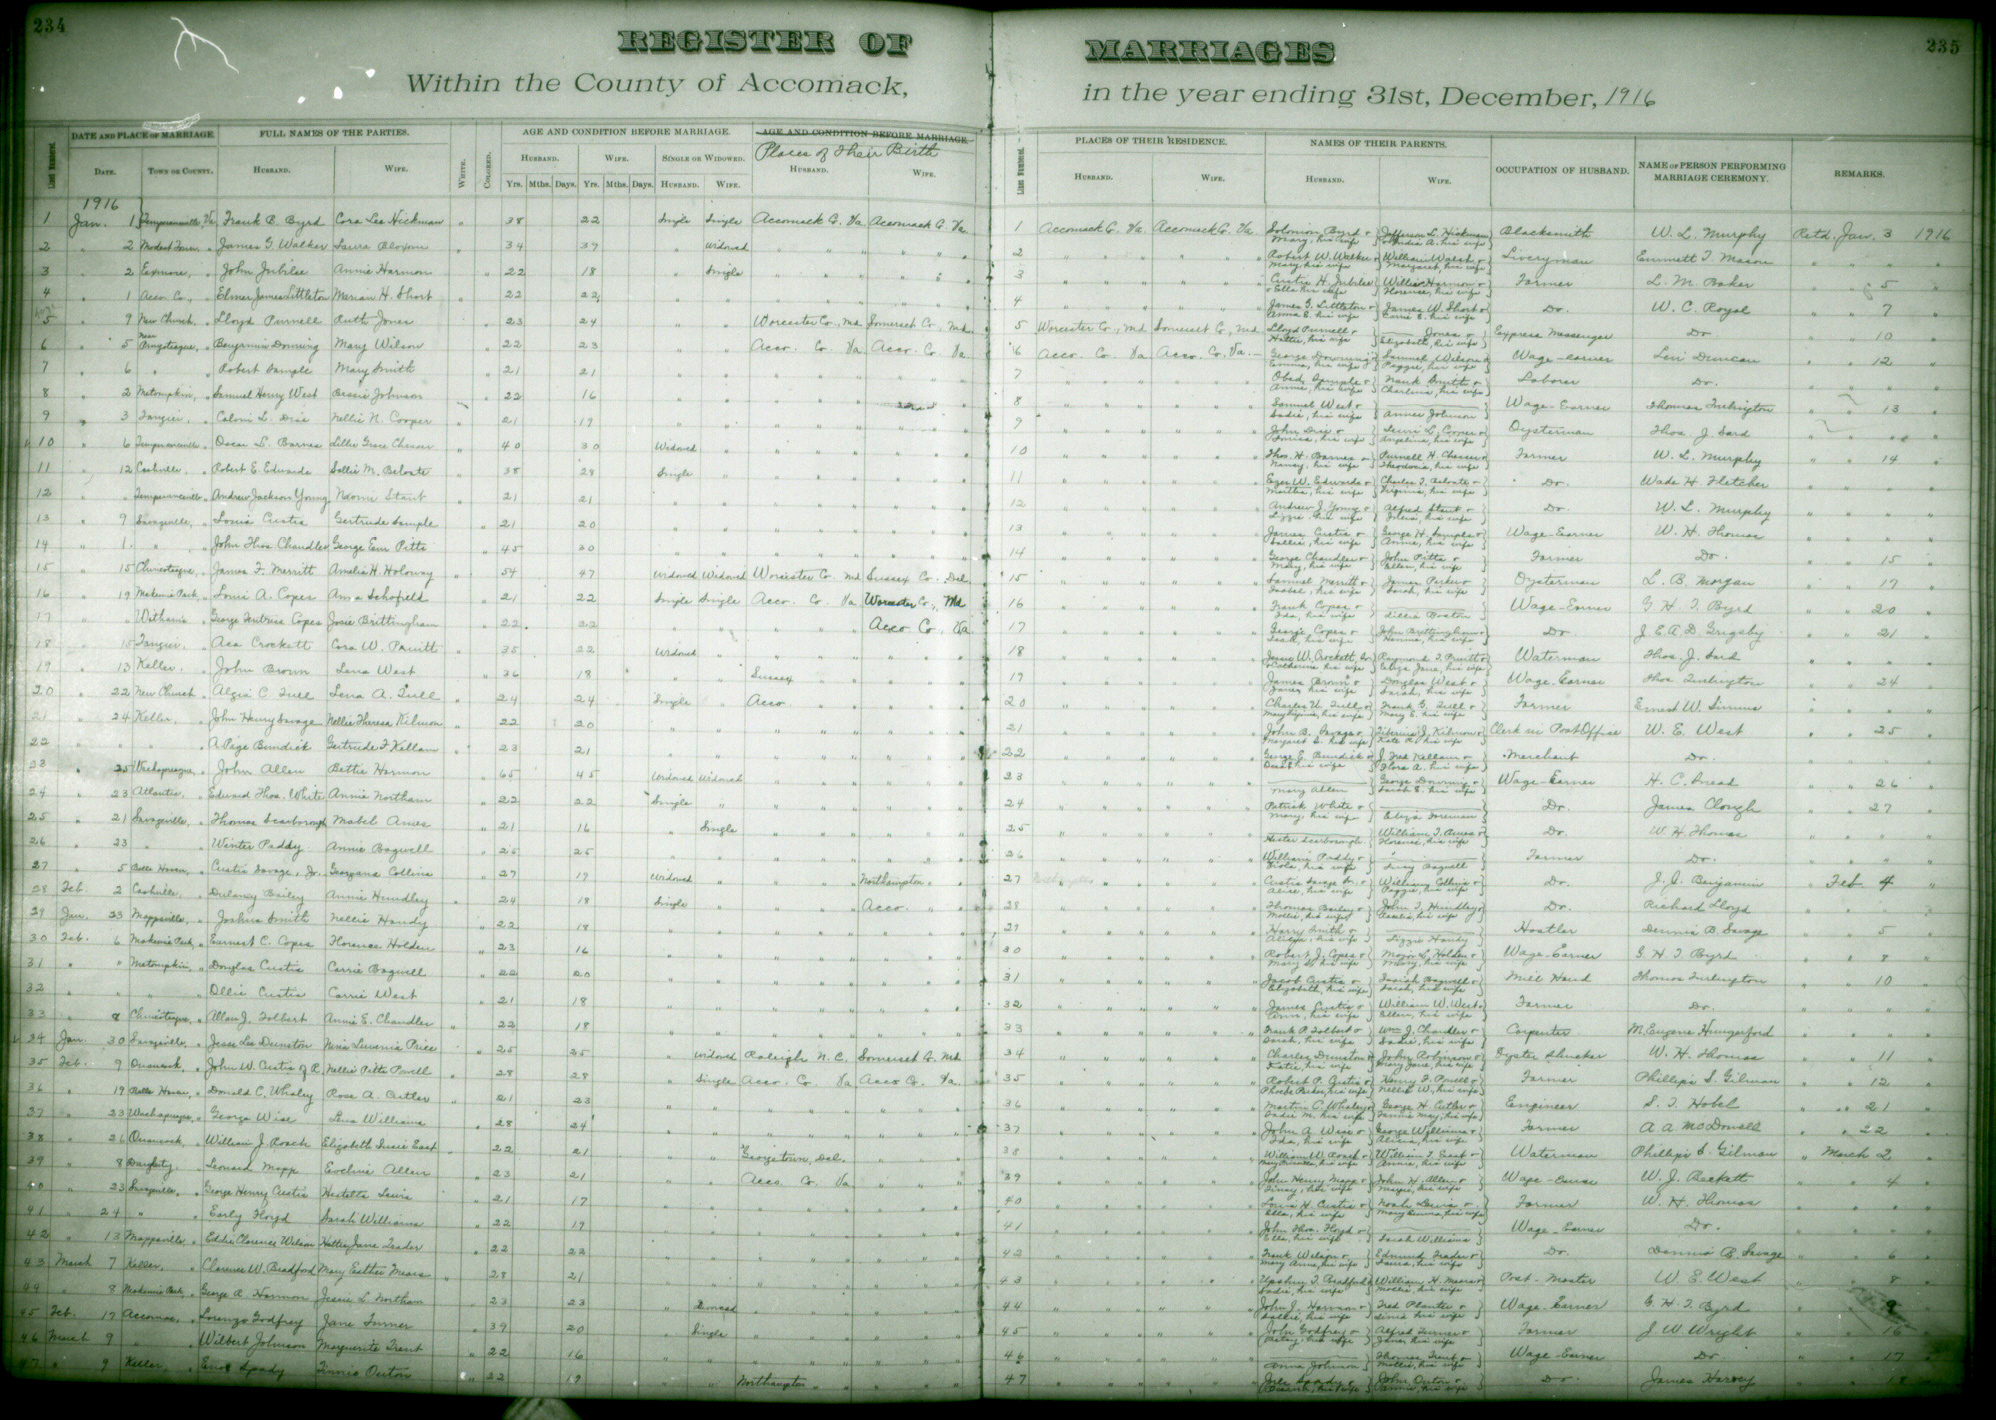 234
REGISTER OF MARRIAGES
235
Within the County of Accomack, in the year ending 31st, December, 1916
DATE AND PLACE OF MARRIAGE. FULL NAMES OF THE PARTIES. AGE AND CONDITION BEFORE MARRIAGE. AGE AND CONDITION BEFORE MARRIAGE. PLACES OF THEIR RESIDENCE. NAMES OF THEIR PARENTS.
Places of Their Birth
Line Number. DATE. TOWN OR COUNTY. HUSBAND. WIFE. WHITE. COLORED. HUSBAND. WIFE. SINGLE OR WIDOWED. HUSBAND. WIFE. Line Number. HUSBAND. WIFE. HUSBAND. WIFE. OCCUPATION OF HUSBAND. NAME OF PERSON PERFORMING MARRIAGE CEREMONY. REMARKS.
Yrs. Mths. Days. Yrs. Mths. Days. HUSBAND. WIFE.
1916
1 Jan. 1 Temperanceville, Va Frank B. Byrd Cora Lee Hickman " 38 22 Single Single Accomack Co. Va Accomack Co. Va 1 Accomack Co. Va Accomack Co. Va Solomon Byrd & Mary, his wife Jefferson L. Hickman his wife Blacksmith W. L. Murphy Retd. Jan. 3 1916
2 " 2 Modest Town, " James G. Walker Laura Bloxom " 34 37 " Widowed 2 Robert W. Walker & Mary his wife William Walsh & Margaret, his wife Liveryman Emmett T. Mason
3 " 2 Exmore, " John Jubilee Annie Harmon " 22 18 " Single 3 Custis Jubilee & Ella his wife Willie Harmon & Florence, his wife Farmer L. M. Baker " " 5
4 " 1 Acco Co., " Elmer James Littleton Marian H. Short " 22 22 4 James G. Littleton & his wife James W. Short & his wife Do. W. C. Royal " " 7
5 " 9 New Church, " Lloyd Purnell Ruth Jones " 23 24 Worcester Co., Md Somerset Co., Md. 5 Worcester Co., Md Somerset Co., Md Lloyd Purnell & Hattie, his wife Jones & Elizabeth, his wife Express Messenger Do. " " 10
6 " 5 Near Pungoteague, " Benjamin Downing Mary Wilson " 22 23 Acco. Co. Va Acco. Co. Va 6 Acco. Co. Va Acco. Co. Va. George Downing & Emma, his wife Samuel Wilson & his wife Wage-earner Levi Duncan " " 12
7 " 6 " " Robert Sample Mary Smith " 21 21 7 Obed Sample & Annie, his wife Frank Smith & his wife Laborer Do.
8 " 2 Metompkin, " Samuel Henry West Bessie Johnson " 22 16 8 Samuel West & Sadie, his wife Annie Johnson Wage-Earner Thomas Turlington " " 13
9 " 3 Tangier, " Calvin L. Dise Nellie N. Cooper " 21 19 9 John Dise & his wife his wife Oysterman Thos. J. Sard
10 " 6 Temperanceville, " Oscar S. Barnes Lillie Grace Chesser " 40 30 Widowed 10 Thos. H. Barnes & Nancy, his wife Purnell H. Chesser & Theodosia, his wife Farmer W. L. Murphy " " 14
11 " 12 Cashville, " Robert E. Edwards Sallie M. Beloate " 38 28 Single 11 W. Edwards & Martha, his wife Virginia, his wife Do. Wade H. Fletcher
12 " " Temperanceville, " Andrew Jackson Young Naomi Stant " 21 21 12 Andrew J. Young & Lizzie his wife Alfred Stant & his wife Do. W. L. Murphy
13 " 9 Savageville, " Louis Custis Gertrude Sample " 21 20 13 James Custis & Sallie, his wife George H. Sample & Annie, his wife Wage-Earner W. H. Thomas
14 " 1 " " John Thos. Chandler George Emr Pitts " 45 30 14 George Chandler & Mary, his wife John Pitts & Ellen, his wife Farmer Do. " " 15
15 " 15 Chincoteague, " James F. Merritt Amelia H. Holoway " 54 47 Widowed Widowed Worcester Co. Md Sussex Co. Del. 15 Samuel Merritt & his wife James Parker & Sarah, his wife Oysterman L. B. Morgan " " 17
16 " 19 Makemie Park, " Louis A. Copes Anna Schofield " 21 22 Single Single Acco. Co. Va Worcester Co., Md 16 Frank Copes & Ida, his wife Lillie Boston Wage-Earner G. H. T. Byrd " " 20
17 " " Withams " George Copes Josie Brittingham " 22 22 Acco Co., Va 17 George Copes & his wife John Brittingham & his wife Do. J. E. A. D. Grigsby " " 21
18 " 15 Tangier, " Asa Crockett Cora W. Pruitt " 35 22 Widowed 18 Jesse W. Crockett, Sr. & Catherine his wife Raymond T. Pruitt & Eliza Jane, his wife Waterman Thos. J. Sard
19 " 13 Keller, " John Brown Lena West " 36 18 Sussex 19 James Brown & his wife Douglas West & Sarah, his wife Wage-Earner Thos. Turlington " " 24
20 " 22 New Church " Algie C. Tull Lena A. Tull " 24 24 Single Acco 20 Charles W. Tull & his wife Frank G. Tull & Mary E. his wife Farmer Ernest W. Simms
21 " 24 Keller, " John Henry Savage Nellie Theresa Kilmon " 22 20 21 John B. Savage & Margaret E. his wife J. Kilmon & his wife Clerk in Post Office W. E. West " " 25
22 " " " A. Page Bundick Gertrude F. Kellam " 23 21 22 George E. Bundick & his wife J. Fred Kellam & Flora A. his wife Merchant Do.
23 " 25 Wachapreague, " John Allen Bettie Harmon " 65 45 Widowed Widowed 23 Mary Allen George Downing & Sarah E. his wife Wage-Earner H. C. Snead " " 26
24 " 23 Atlantic, " Edward Thos. White Annie Northam " 22 22 Single " 24 Patrick White & Mary, his wife Eliza Foreman Do. James Clough " " 27
25 " 21 Savageville, " Thomas Scarborough Mabel Ames " 21 16 " Single 25 Hester Scarborough William T. Ames & Florence, his wife Do. W. H. Thomas
26 " 23 " " Winter Paddy Annie Bagwell " 25 25 26 William Paddy & Viola, his wife Lucy Bagwell Farmer Do.
27 " 5 Belle Haven, " Custis Savage, Jr. Georgana Collins " 27 19 Widowed Northampton 27 Custis Savage Sr. & Alice, his wife William Collins & his wife Do. J. J. Benjamin " Feb 4
28 Feb. 2 Cashville, " Dulany Bailey Annie Hundley " 24 18 Single Acco. 28 Thomas Bailey & Mollie, his wife John T. Hundley & his wife Do. Richard Lloyd
29 Jan. 23 Mappsville, " Joshua Smith Nellie Handy " 22 18 29 Harry Smith & his wife Lizzie Handy Hostler Dennis B. Savage " " 5
30 Feb. 6 Makemie Park, " Earnest C. Copes Florence Holden " 23 16 30 Robert J. Copes & his wife Major L. Holden & Mary, his wife Wage-Earner G. H. T. Byrd " " 8
31 " " Metompkin, " Douglas Custis Carrie Bagwell " 22 20 31 Jacob Custis & Elizabeth, his wife Isaiah Bagwell & Sarah, his wife Mill Hand Thomas Turlington " " 10
32 " " " " Ollie Custis Carrie West " 21 18 32 James Custis & Ann, his wife William W. West & Ellen, his wife Farmer Do.
33 " 8 Chincoteague, " Allan J. Tolbert Annie E. Chandler " 22 18 33 Frank P. Tolbert & Sarah, his wife Wm. J. Chandler & Sadie, his wife Carpenter M. Eugene Hungerford
34 Jan. 30 Savageville, " Jesse Lee Dunston Nina Luvenia Price " 25 25 " Widowed Raleigh N. C. Somerset Co. Md 34 Charles Dunston & Katie, his wife John Robinson & Mary Jane, his wife Oyster Shucker W. H. Thomas " " 11
35 Feb. 9 Onancock, " John W. Custis of R. Nellie Pitts Powell " 28 28 " Single Acco. Co. Va Acco Co. Va. 35 Robert P. Custis & Phoebe Parker, his wife Henry F. Powell & Nellie W. his wife Farmer Phillips S. Gilman " " 12
36 " 19 Belle Haven, " Donald C. Whaley Rose A. Cutler " 21 23 36 Martin C. Whaley & Sadie M. his wife George H. Cutler & Fannie May, his wife Engineer S. T. Hobel " " 21
37 " 23 Wachapreague, " George Wise Lena Williams " 28 24 37 John A. Wise & Ida, his wife George Williams & his wife Farmer A A McDonald " " 22
38 " 26 Onancock, " William J. Roach Elizabeth Susie East " 22 21 Georgetown, Del. 38 William W. Roach & his wife William T. East & Annie, his wife Waterman Phillips S. Gilman " March 2
39 " 8 Daugherty, " Leonard Mapp Eveline Allen " 23 21 Acco. Co. Va 39 John Henry Mapp & his wife John H. Allen & his wife Wage-Earner W. J. Beckett " " 4
40 " 23 Savageville, " George Henry Custis Hestella Lewis " 21 17 40 Louis H. Custis & Ella, his wife Noah Lewis & his wife Farmer W. H. Thomas
41 " 24 " " Early Floyd Sarah Williams " 22 19 41 John Thos. Floyd & Ella, his wife Sarah Williams Wage-Earner Do.
42 " 13 Mappsville, " Eddie Clarence Wilson Hattie Jane Trader " 22 22 42 Frank Wilson & Mary Anna, his wife Edmund Trader & his wife Do. Dennis B. Savage " " 6
43 March 7 Keller, " Clarence W. Bradford Mary Esther Mears " 28 21 43 Upshur T. Bradford & Sadie, his wife William H. Mears & Mollie, his wife Post-Master W. E. West " " 8
44 " 8 Makemie Park, " George A. Harmon Jessie L. Northam " 23 23 " Divorced 44 John J. Harmon & his wife Fred Planter & his wife Wage-Earner G. H. T. Byrd " " 9
45 Feb. 17 Accomac, " Lorenzo Godfrey Jane Turner " 39 20 " Single 45 John Godfrey & his wife Alfred Turner & Jane, his wife Farmer J. W. Wright " " 16
46 March 9 " " Wilbert Johnson Marguerite Trent " 22 16 46 Anna Johnson Thomas Trent & Mollie, his wife Wage-Earner Do. " " 17
47 " 9 Keller, " Enos Spady Tinnie Outon " 22 19 Northampton 47 Spady & his wife John Outon & his wife Do. James Harvey " " 18